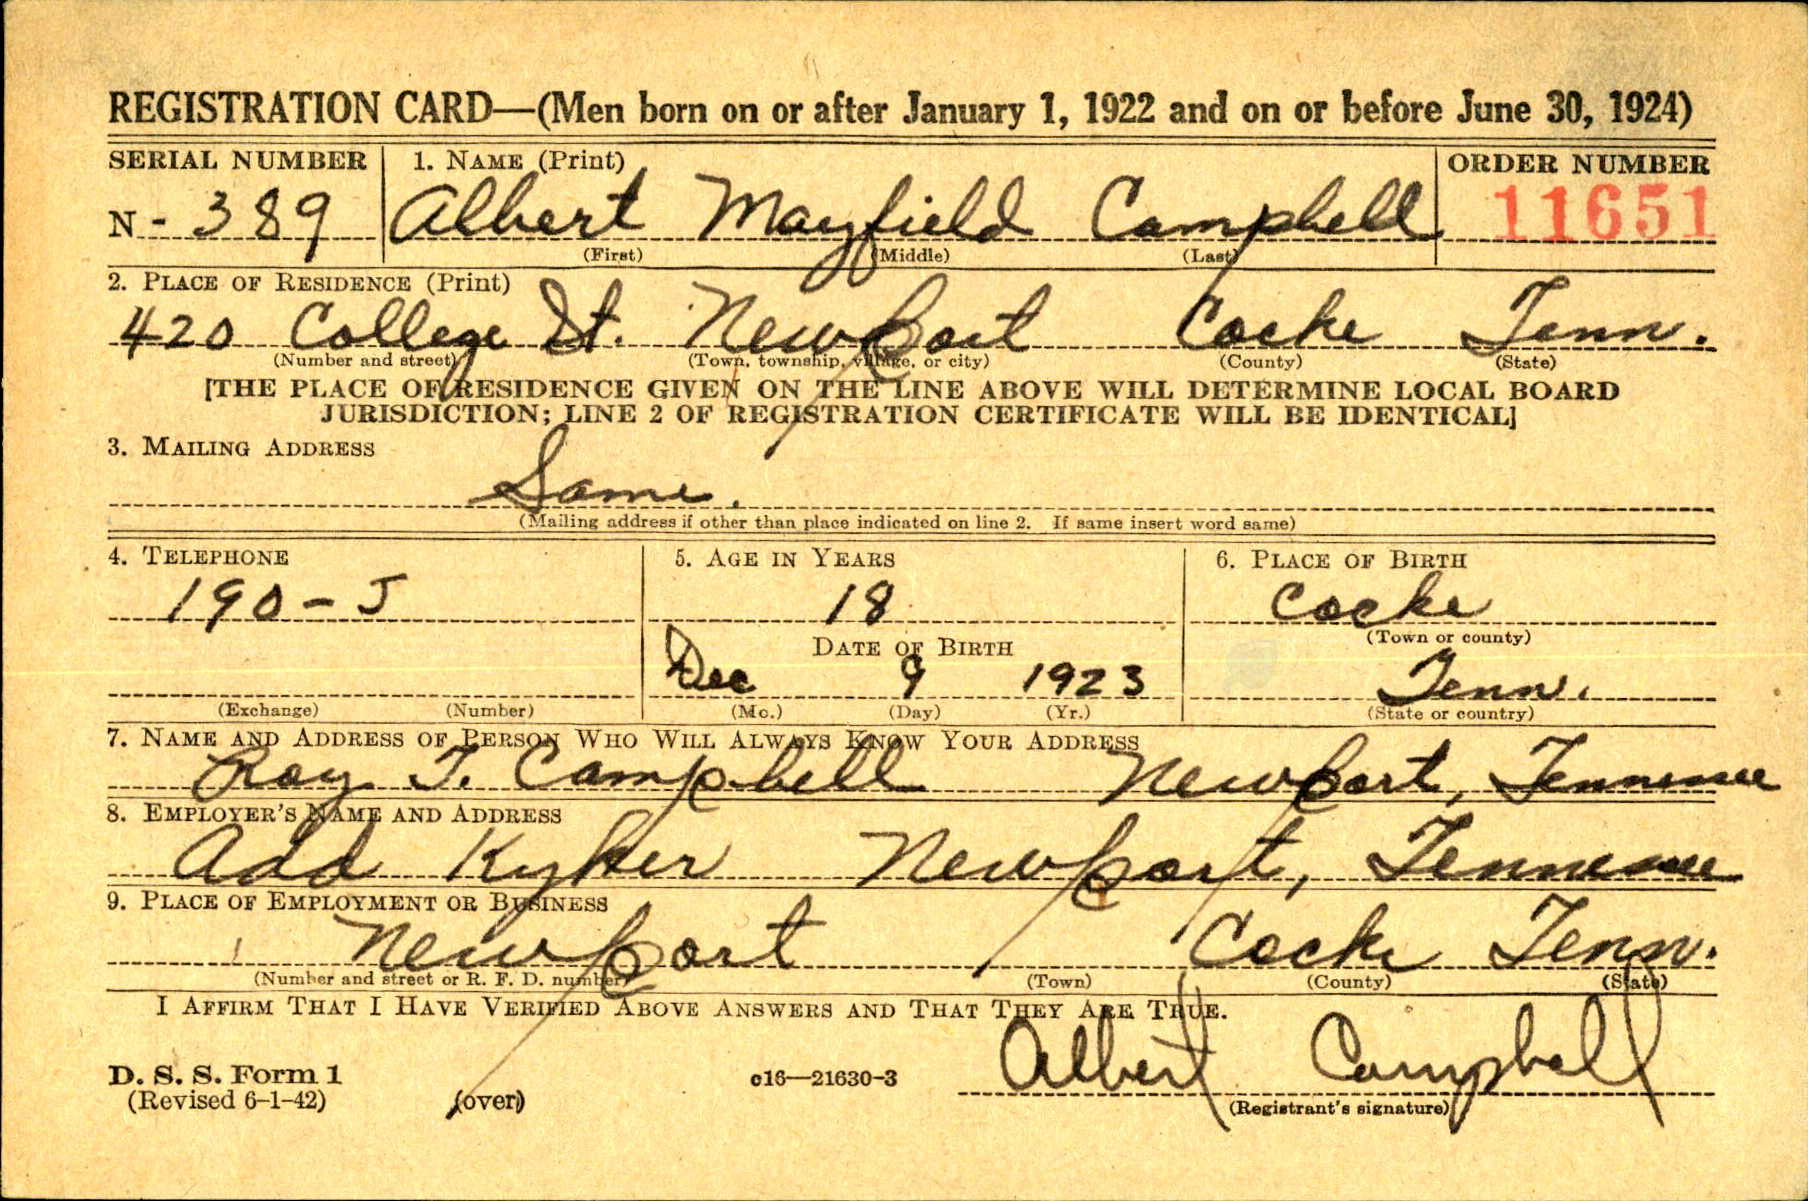 REGISTRATION CARD—(Men born on or after January 1, 1922 and on or before June 30, 1924)
SERIAL NUMBER 1. NAME (Print) ORDER NUMBER
N - 389 Albert Mayfield Campbell 11651
(First) (Middle) (Last)
2. PLACE OF RESIDENCE (Print)
420 College St. Newport Cocke Tenn.
(Number and street) (Town, township, village, or city) (County) (State)
[THE PLACE OF RESIDENCE GIVEN ON THE LINE ABOVE WILL DETERMINE LOCAL BOARD
JURISDICTION; LINE 2 OF REGISTRATION CERTIFICATE WILL BE IDENTICAL]
3. MAILING ADDRESS
Same.
(Mailing address if other than place indicated on line 2. If same insert word same)
4. TELEPHONE 5. AGE IN YEARS 6. PLACE OF BIRTH
190-J 18 Cocke
(Town or county)
DATE OF BIRTH
Dec 9 1923 Tenn.
(Exchange) (Number) (Mo.) (Day) (Yr.) (State or country)
7. NAME AND ADDRESS OF PERSON WHO WILL ALWAYS KNOW YOUR ADDRESS
Roy T. Campbell Newport, Tennessee
8. EMPLOYER'S NAME AND ADDRESS
Add Kyker Newport, Tennessee
9. PLACE OF EMPLOYMENT OR BUSINESS
Newport Cocke Tenn.
(Number and street or R. F. D. number) (Town) (County) (State)
I AFFIRM THAT I HAVE VERIFIED ABOVE ANSWERS AND THAT THEY ARE TRUE.
Albert Campbell
D. S. S. Form 1 c16—21630-3
(Revised 6-1-42) (over) (Registrant's signature)